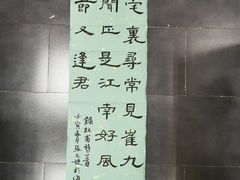 宅裏尋常見崔九
聞正是江南好風
節又逢君
錄杜甫詩一首
壬寅春月